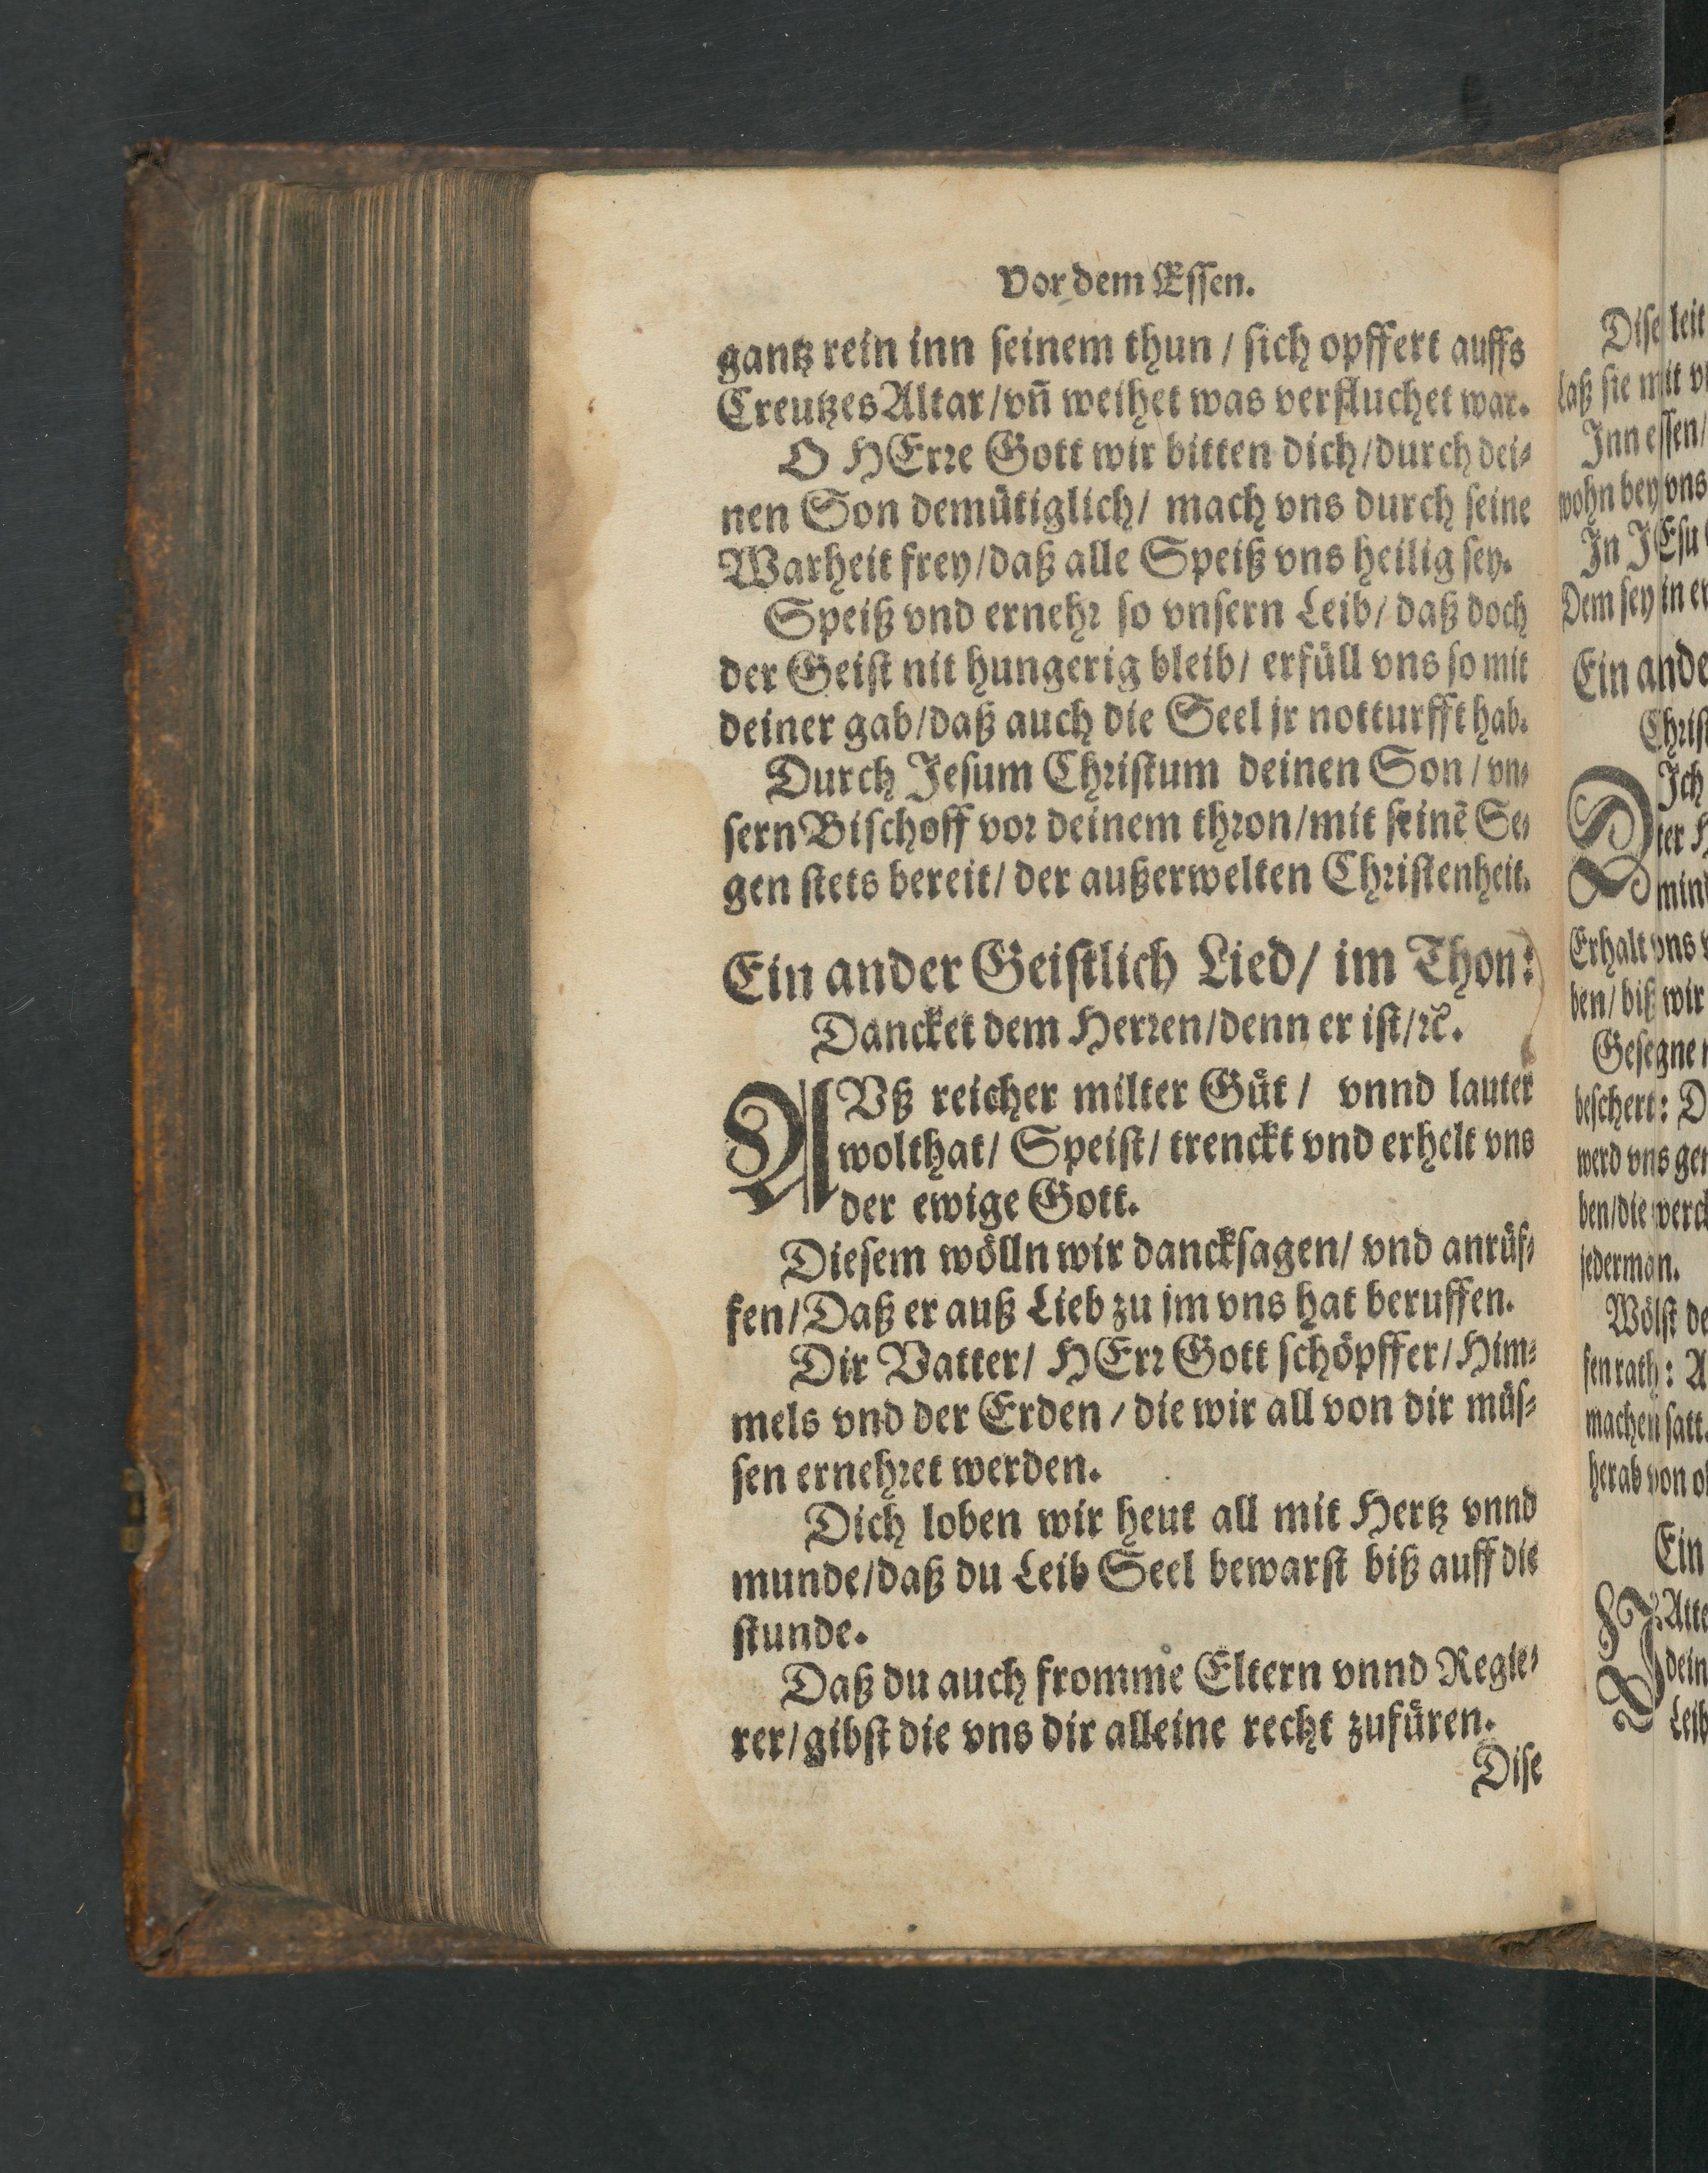 Vor dem Essen.
gantz rein inn seinem thun / sich opffert auffs
Creutzes Altar/vñ weihet was verfluchet war.
O HErre Gott wir bitten dich/durch dei-
nen Son demütiglich/ mach vns durch seine
Warheit frey/daß alle Speiß vns heilig sey.
Speiß vnd ernehr so vnsern Leib/ daß doch
der Geist nit hungerig bleib/ erfüll vns so mit
deiner gab/daß auch die Seel jr notturfft hab.
Durch Jesum Christum deinen Son / vn-
sern Bischoff vor deinem thron/mit seinē Se-
gen stets bereit/ der außerwelten Christenheit.
Ein ander Geistlich Lied/ im Thon:
Dancket dem Herren/denn er ist/ꝛc̃.
AVß reicher milter Güt / vnnd lauter
wolthat/ Speist/ trenckt vnd erhelt vns
der ewige Gott.
Diesem wölln wir dancksagen/ vnd anrüf-
fen/Daß er auß Lieb zu jm vns hat beruffen.
Dir Vatter/ HErr Gott schöpffer/Him-
mels vnd der Erden / die wir all von dir müs-
sen ernehret werden.
Dich loben wir heut all mit Hertz vnnd
munde/daß du Leib Seel bewarst biß auff die
stunde.
Daß du auch fromme Eltern vnnd Regie-
rer/gibst die vns dir alleine recht zufüren.
Dise
Dise leit
laß sie mit
Inn essen/
wohn bey vns
In JEsu
Dem sey in
Ein ande
Christ
DIch
ter
mind
Erhalt vns
ben/ biß wir
Gesegne
beschert: D
werd vns gen
ben/die werck
jederman.
Wölst de
sen rath: A
machen satt.
herab von
Ein
VAtte
dein
Leib